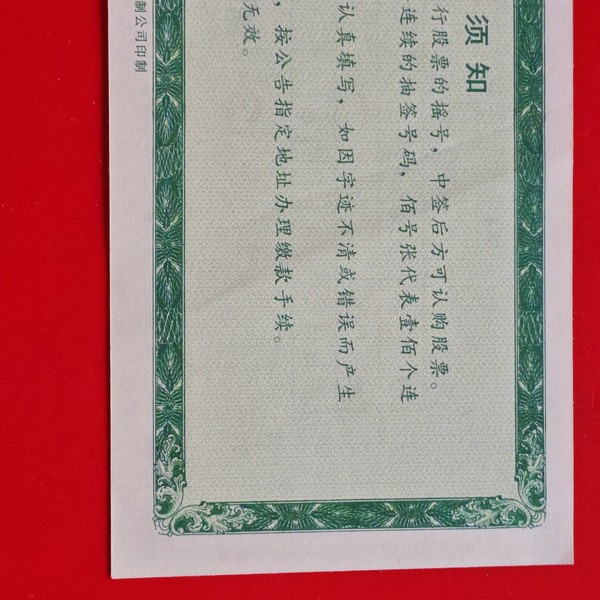 须知
行股票的摇号,中签后方可认购股票。
连续的抽签号码,佰号张代表壹佰个连
认真填写,如因字迹不清或错误而产生
,按公告指定地址办理缴款手续。
无效。
制公司印制